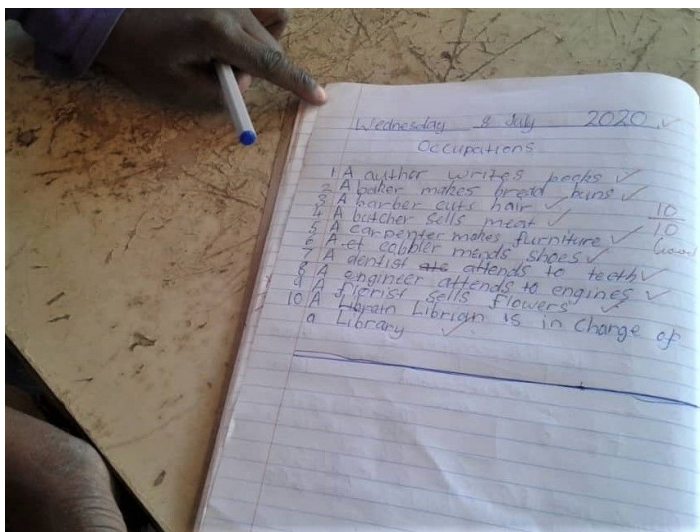 Wednesday 8 July 2020
Occupations
1 A author writes books
2 A baker makes bread buns
3 A barber cuts hair
4 A butcher sells meat
5 A carpenter makes furniture
6 A cobbler mends shoes
7 A dentist attends to teeth
8 A engineer attends to engines
9 A florist sells flowers
10 A Librian is in charge of
a Library
10
10
Good